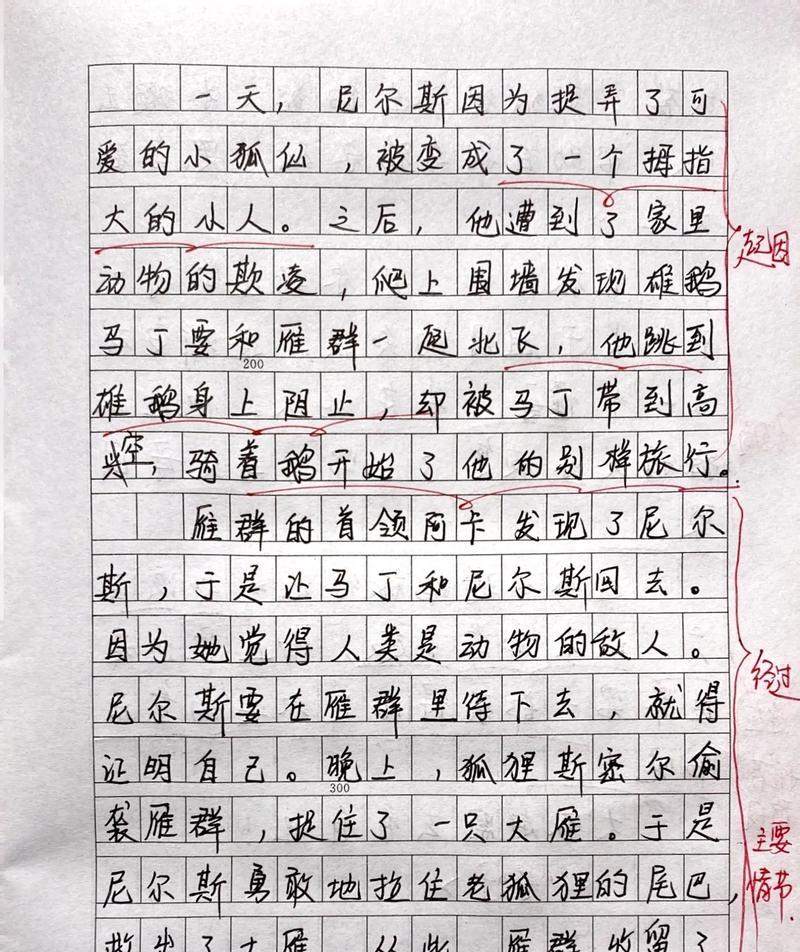 一天，尼尔斯因为捉弄了可
爱的小狐仙，被变成了一个拇指
大的小人。之后，他遭到了家里
动物的欺凌，爬上围墙发现雄鹅
起因
马丁要和雁群一起北飞，他跳到
200
雄鹅身上阻止，却被马丁带到高
空，骑着鹅开始了他的别样旅行。
雁群的首领阿卡发现了尼尔
斯，于是让马丁和尼尔斯回去。
因为她觉得人类是动物的敌人。
经过
尼尔斯要在雁群里待下去，就得
证明自己。晚上，狐狸斯密尔偷
300
袭雁群，捉住了一只大雁。于是
主要
情节.
尼尔斯勇敢地拉住老狐狸的尾巴，
救出了大雁。从此，雁群收留了